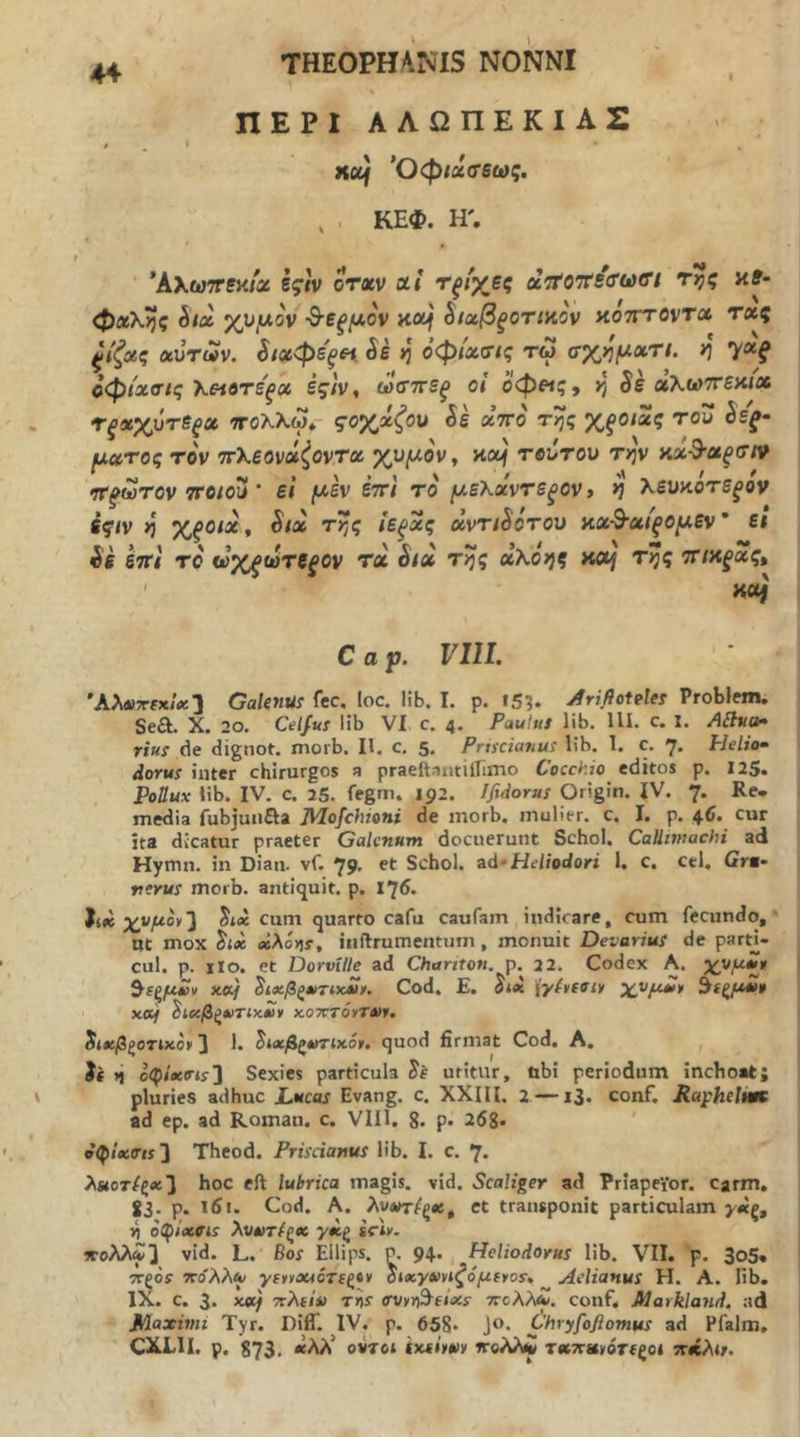 44
THEOPHANIS NONNI
ΠΕΡΙ ΑΛΩΠΕΚΙΑΣ
καὶ Ὀφιάσεως.
ΚΕΦ. Η'.
Ἀλωπεκία ἐςὶν ὅταν αἱ τρίχες ἀποπέσωσι τῆς κε-
φαλῆς διὰ χυμὸν θερμὸν καὶ διαβροτικὸν κόπτοντα τὰς
ῥίζας αὐτῶν. διαφέρει δὲ ἡ ὀφίασις τῷ σχήματι. ἡ γὰρ
ὀφίασις λειοτέρα ἐςὶν, ὥσπερ οἱ ὄφεις, ἡ δὲ ἀλωπεκία
τραχύτερα πολλῷ. ςοχάζου δὲ ἀπὸ τῆς χροιᾶς τοῦ δέρ-
ματος τὸν πλεονάζοντα χυμὸν, καὶ τούτου τὴν κάθαρσιν
πρῶτον ποιοῦ· εἰ μὲν ἐπὶ τὸ μελάντερον, ἢ λευκότερόν
ἐςιν ἡ χροιά, διὰ τῆς ἱερᾶς ἀντιδότου καθαίρομεν· εἰ
δὲ ἐπὶ τὸ ὠχρώτερον τὰ διὰ τῆς ἀλόης καὶ τῆς πικρᾶς,
καὶ
Cap. VIII.
Ἀλωπεκία] Galenus ſec. loc. lib. I. p. 153. Ariſtoteles Problem.
Sect. X. 20. Celſus lib VI c. 4. Paulus lib. III. c. 1. Actua-
rius de dignot. morb. II. c. 5. Priscianus lib. I. c. 7. Helio-
dorus inter chirurgos a praeſtantiſſimo Cocchio editos p. 125.
Pollux lib. IV. c. 25. ſegm. 192. Iſidorus Origin. IV. 7. Re-
media ſubjuncta Moſchioni de morb. mulier. c. I. p. 46. cur
ita dicatur praeter Galenum docuerunt Schol. Callimachi ad
Hymn. in Dian. vſ. 79. et Schol. ad Heliodori l. c. cel. Gru-
nerus morb. antiquit. p. 176.
διὰ χυμὸν] διὰ cum quarto caſu cauſam indicare, cum ſecundo,
ut mox διὰ ἀλόης, inſtrumentum, monuit Devarius de parti-
cul. p. 110. et Dorville ad Chariton. p. 22. Codex A. χυμῶν
θερμῶν καὶ διαβρωτικῶν. Cod. E. διὰ γένεσιν χυμῶν θερμῶν
καὶ διαβρωτικῶν κοπτόντων.
διαβροτικὸν] l. διαβρωτικόν. quod firmat Cod. A.
δὲ ἡ ὀφίασις] Sexies particula δὲ utitur, ubi periodum inchoat;
pluries adhuc Lucas Evang. c. XXIII. 2—13. conf. Raphelius
ad ep. ad Roman. c. VIII. 8. p. 268.
ὀφίασις] Theod. Priscianus lib. I. c. 7.
λειοτέρα] hoc eſt lubrica magis. vid. Scaliger ad Priapeior. carm.
83. p. 161. Cod. A. λυωτέρα, et transponit particulam γὰρ,
ἡ ὀφίασις λυωτέρα γὰρ ἐςὶν.
πολλῷ] vid. L. Bos Ellips. p. 94. Heliodorus lib. VII. p. 305.
πρὸς πόλλῳ γενναιότερον διαγωνιζόμενος. Aelianus H. A. lib.
IX. c. 3. καὶ πλείω τῆς συνηθείας πολλῷ. conf. Markland. ad
Maximi Tyr. Diſſ. IV. p. 658. Jo. Chryſoſtomus ad Pſalm.
CXLII. p. 873. ἀλλ' οὗτοι ἐκείνων πολλῷ ταπεινότεροι πάλιν.